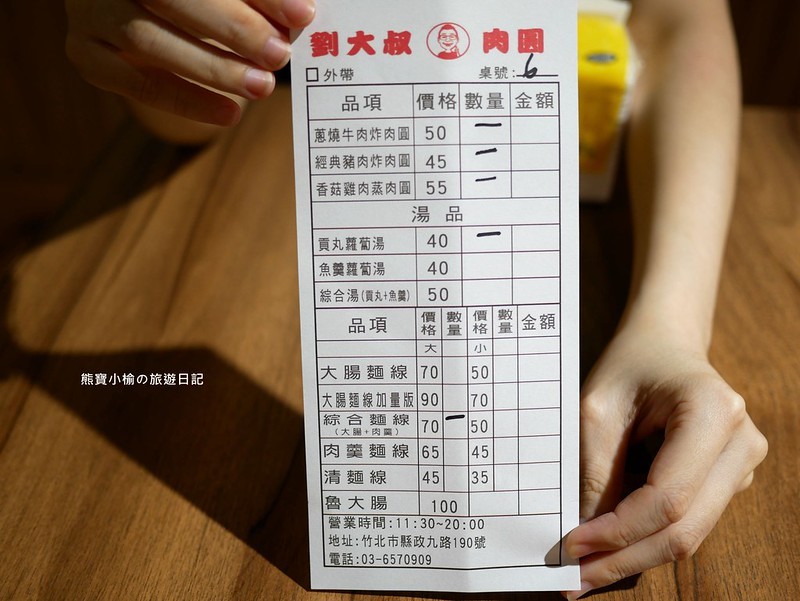 劉大叔 肉圓
外帶 桌號:6
品項 價格 數量 金額
蔥燒牛肉炸肉圓 50 一
經典豬肉炸肉圓 45 一
香菇雞肉蒸肉圓 55 一
湯品
貢丸蘿蔔湯 40 一
魚羹蘿蔔湯 40
綜合湯(貢丸+魚羹) 50
品項 價格 數量 價格 數量 金額
大 小
大腸麵線 70 50
大腸麵線加量版 90 70
綜合麵線 70 一 50
(大腸+肉羹)
肉羹麵線 65 45
清麵線 45 35
魯大腸 100
營業時間:11:30~20:00
地址:竹北市縣政九路190號
電話:03-6570909
熊寶小榆の旅遊日記